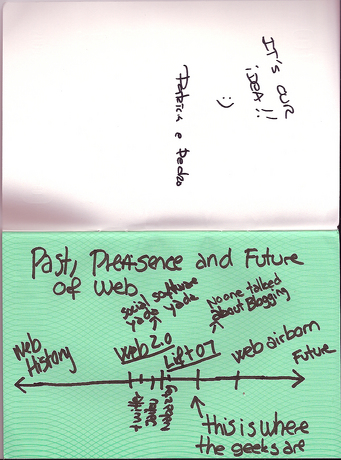 IT'S OUR
iDEA!!
:)
Patricia e Pedro
Past, Presence and Future
of web
social software
yada yada
No one talked
about Blogging
Web
History
Web 2.0
Lift 07
web airborn
Future
this is where
the geeks are